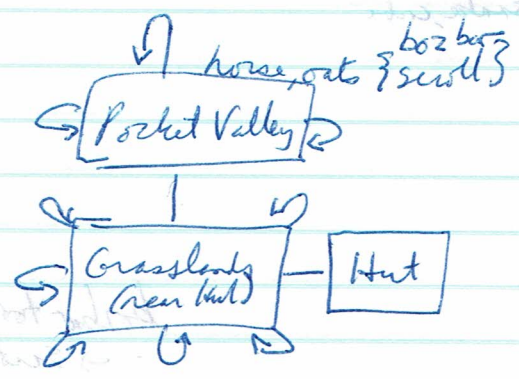 horse, oats { boz bar
scroll }
Pocket Valley
Grasslands
(near Hut)
Hut